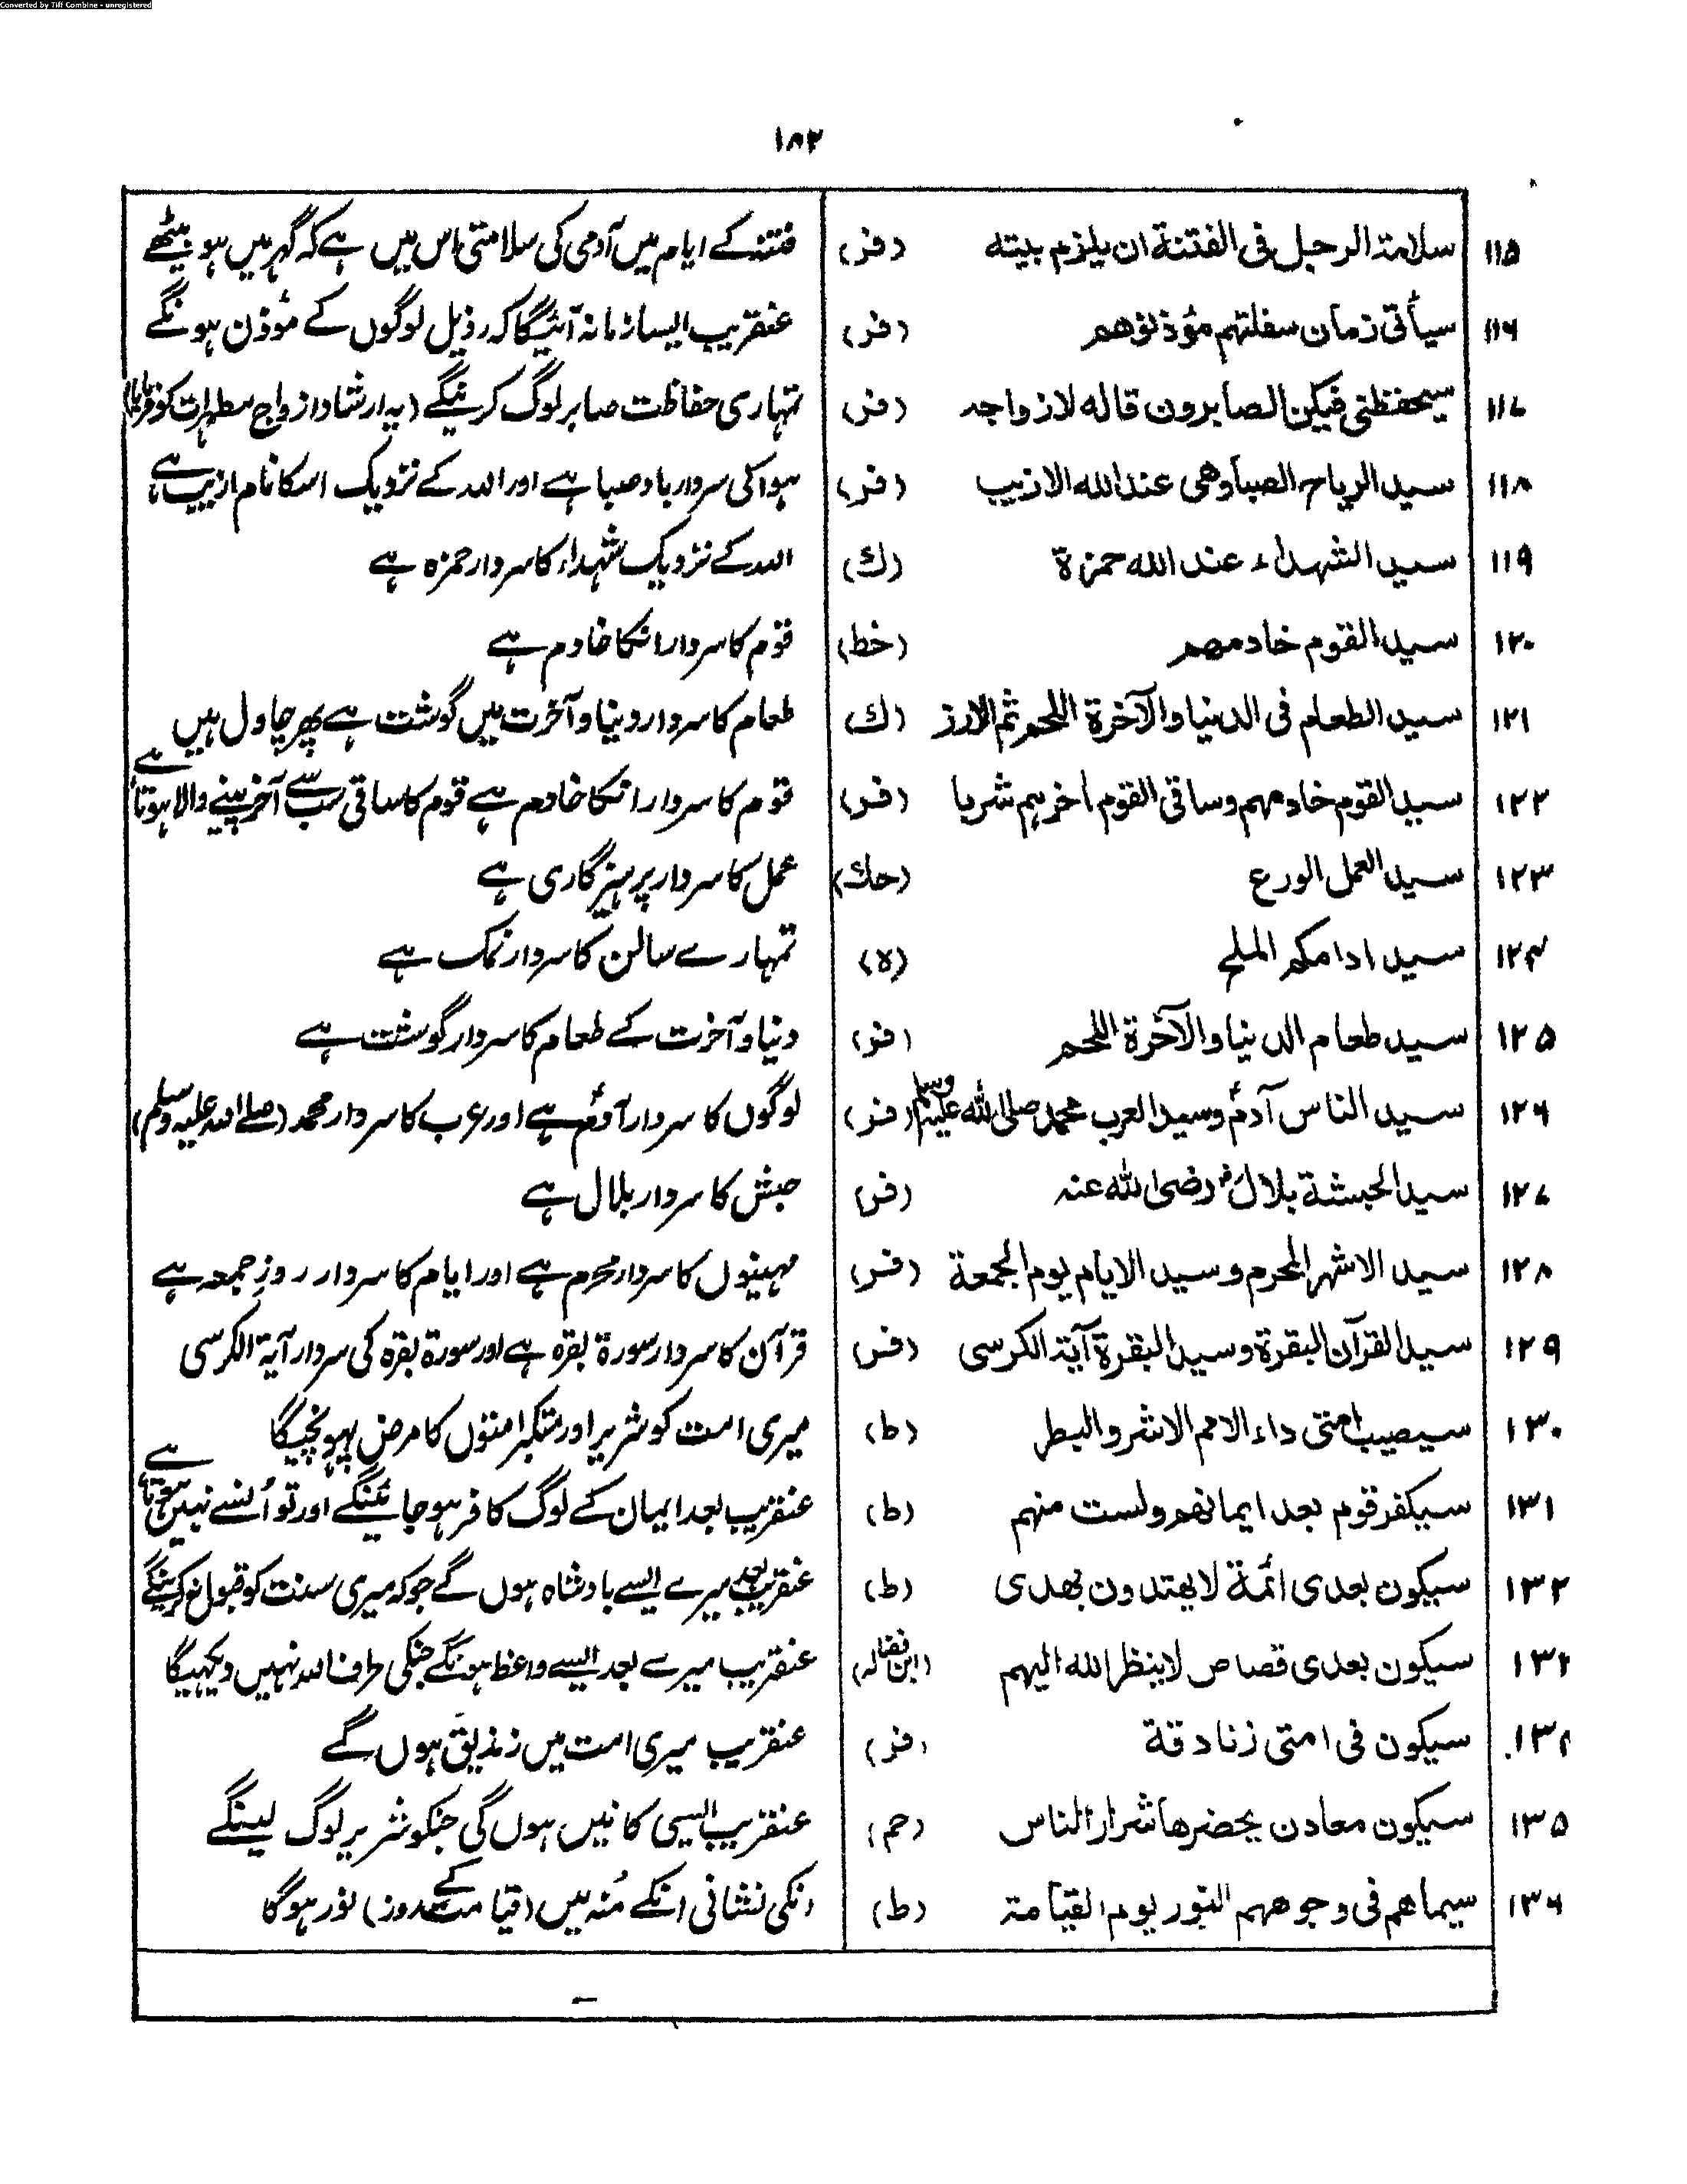 Converted by Tiff Combine - unregistered
۱۸۲
۱۱۵ سلامة الرجل فی الفتنة ان یلزم بیته (فر) فتنہ کے ایام میں آدمی کی سلامتی اس میں ہے کہ گھر میں ہو بیٹھے
۱۱۶ سیأتی زمان سفلتهم مؤذنوهم (فر) عنقریب ایسا زمانہ آئیگا کہ رذیل لوگوں کے مؤذن ہونگے
۱۱۷ سیحفظنی فیکن الصابرون قاله لازواجہ (فر) تمہاری حفاظت صابر لوگ کرینگے (یہ ارشاد ازواج مطہرات کو فرمایا)
۱۱۸ سید الریاح الصبا وهی عند الله الازیب (فر) ہوا کی سردار باد صبا ہے اور اللہ کے نزدیک اسکا نام ازیب ہے
۱۱۹ سید الشهداء عند الله حمزة (ك) اللہ کے نزدیک شہداء کا سردار حمزہ ہے
۱۲۰ سید القوم خادمهم (خط) قوم کا سردار انکا خادم ہے
۱۲۱ سید الطعام فی الدنیا والآخرة اللحم ثم الارز (ك) طعام کا سردار دنیا و آخرت میں گوشت ہے پھر چاول ہیں
۱۲۲ سید القوم خادمهم وساقی القوم آخرهم شربا (فر) قوم کا سردار انکا خادم ہے قوم کا ساقی سب سے آخر پینے والا ہوتا ہے
۱۲۳ سید العمل الورع (حك) عمل کا سردار پرہیزگاری ہے
۱۲۴ سید ادامکم الملح (ہ) تمہارے سالن کا سردار نمک ہے
۱۲۵ سید طعام الدنیا والآخرة اللحم (فر) دنیا و آخرت کے طعام کا سردار گوشت ہے
۱۲۶ سید الناس آدمؑ وسید العرب محمد صلی الله علیه وسلم (فر) لوگوں کا سردار آدمؑ ہے اور عرب کا سردار محمد (صلے اللہ علیہ وسلم)
۱۲۷ سید الحبشة بلالؓ رضی الله عنہ (فر) حبش کا سردار بلال ہے
۱۲۸ سید الاشهر المحرم وسید الایام یوم الجمعة (فر) مہینوں کا سردار محرم ہے اور ایام کا سردار روزِ جمعہ ہے
۱۲۹ سید القرآن البقرة وسید البقرة آیة الکرسی (فر) قرآن کا سردار سورۃ بقرہ ہے اور سورۃ بقرہ کی سردار آیۃ الکرسی
۱۳۰ سیصیب امتی داء الامم الاشر والبطر (ط) میری امت کو شریر اور متکبر امتوں کا مرض پہونچیگا
۱۳۱ سیکفر قوم بعد ایمانهم ولست منهم (ط) عنقریب بعد ایمان کے لوگ کافر ہو جائینگے اور تو اُنسے نہیں ہوتا ہے
۱۳۲ سیکون بعدی ائمة لا یهتدون بهدی (ط) عنقریب بعد میرے ایسے بادشاہ ہوں گے جو کہ میری سنت کو قبول نہ کرینگے
۱۳۳ سیکون بعدی قصاص لا ینظر الله الیهم عنقریب میرے بعد ایسے واعظ ہونگے جنکی طرف اللہ نہیں دیکھیگا
۱۳۴ سیکون فی امتی زنادقة (فر) عنقریب میری امت میں زندیق ہوں گے
۱۳۵ سیکون معادن یحضرها شرار الناس (حم) عنقریب ایسی کانیں ہوں گی جنکو شریر لوگ لینگے
۱۳۶ سیماهم فی وجوههم النور یوم القیامة (ط) انکی نشانی انکے مُنہ میں (قیامت کے روز) نور ہوگا